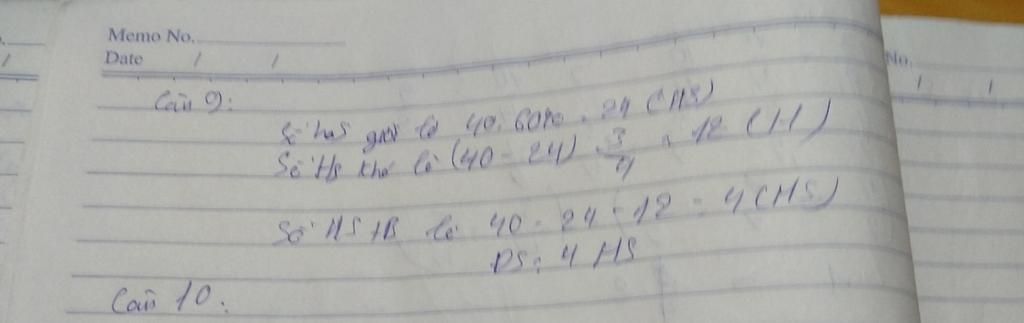 Memo No.
Date / /
No.
/ /
Câu 9:
Số hs giỏi là 40. 60% = 24 (HS)
Số Hs khá là (40 - 24) . 3/4 = 12 (H)
Số HS TB là 40 - 24 - 12 = 4 (HS)
ĐS: 4 HS
Câu 10: